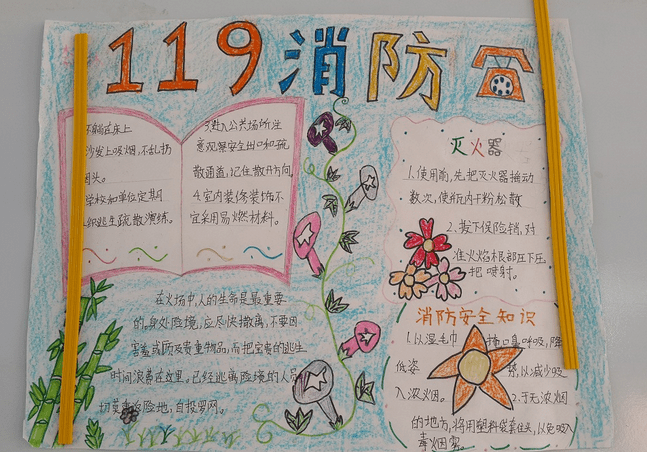 119消防
不躺在床上
沙发上吸烟,不乱扔
头。
学校和单位定期
织逃生疏散演练。
3.进入公共场所注
意观察安全出口和疏
散通道,记住散开方向
4.室内装修装饰不
宜采用易燃材料。
灭火器
1.使用前,先把灭火器摇动
数次,使瓶内干粉松散
2.拔下保险销,对
准火焰根部压下压
把喷射。
在火场中,人的生命是最重要
的,身处险境,应尽快撤离,不要因
害羞或顾及贵重物品,而把宝贵的逃生
时间浪费在这里。已经逃离险境的人员
切莫重返险地,自投罗网。
消防安全知识
1.以湿毛巾 掩口鼻呼吸,降
低姿 势,以减少吸
入浓烟。 2.于无浓烟
的地方,将用塑料袋套住头,以免吸入
毒烟雾。